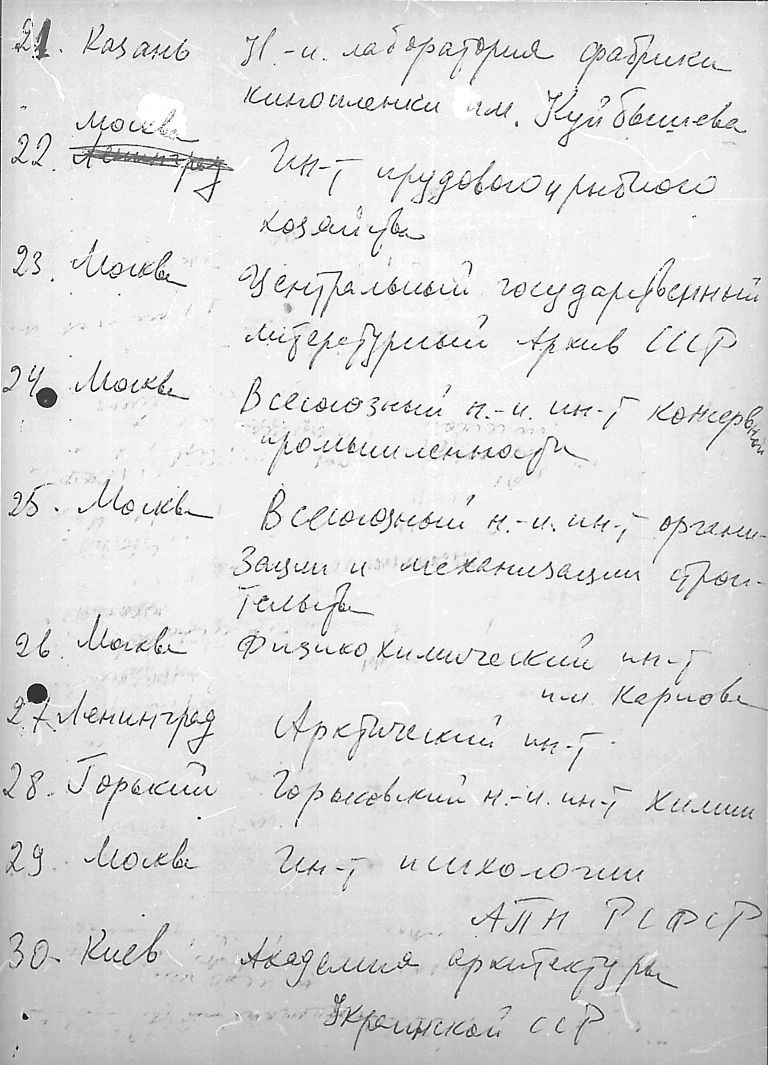 21. Казань Н.-и. лаборатория фабрики
кинопленки им. Куйбышева
Москва
22. Ленинград Ин-т прудового и рыбного
хозяйства
23. Москва Центральный государственный
литературный Архив СССР
24. Москва Всесоюзный н.-и. ин-т консервной
промышленности
25. Москва Всесоюзный н.-и. ин-т органи-
зации и механизации строи-
тельства
26. Москва Физико химический ин-т
им. Карпова
27. Ленинград Арктический ин-т.
28. Горький Горьковский н.-и. ин-т химии
29. Москва Ин-т психологии
АПН РСФСР
30. Киев Академия архитектуры
Украинской ССР